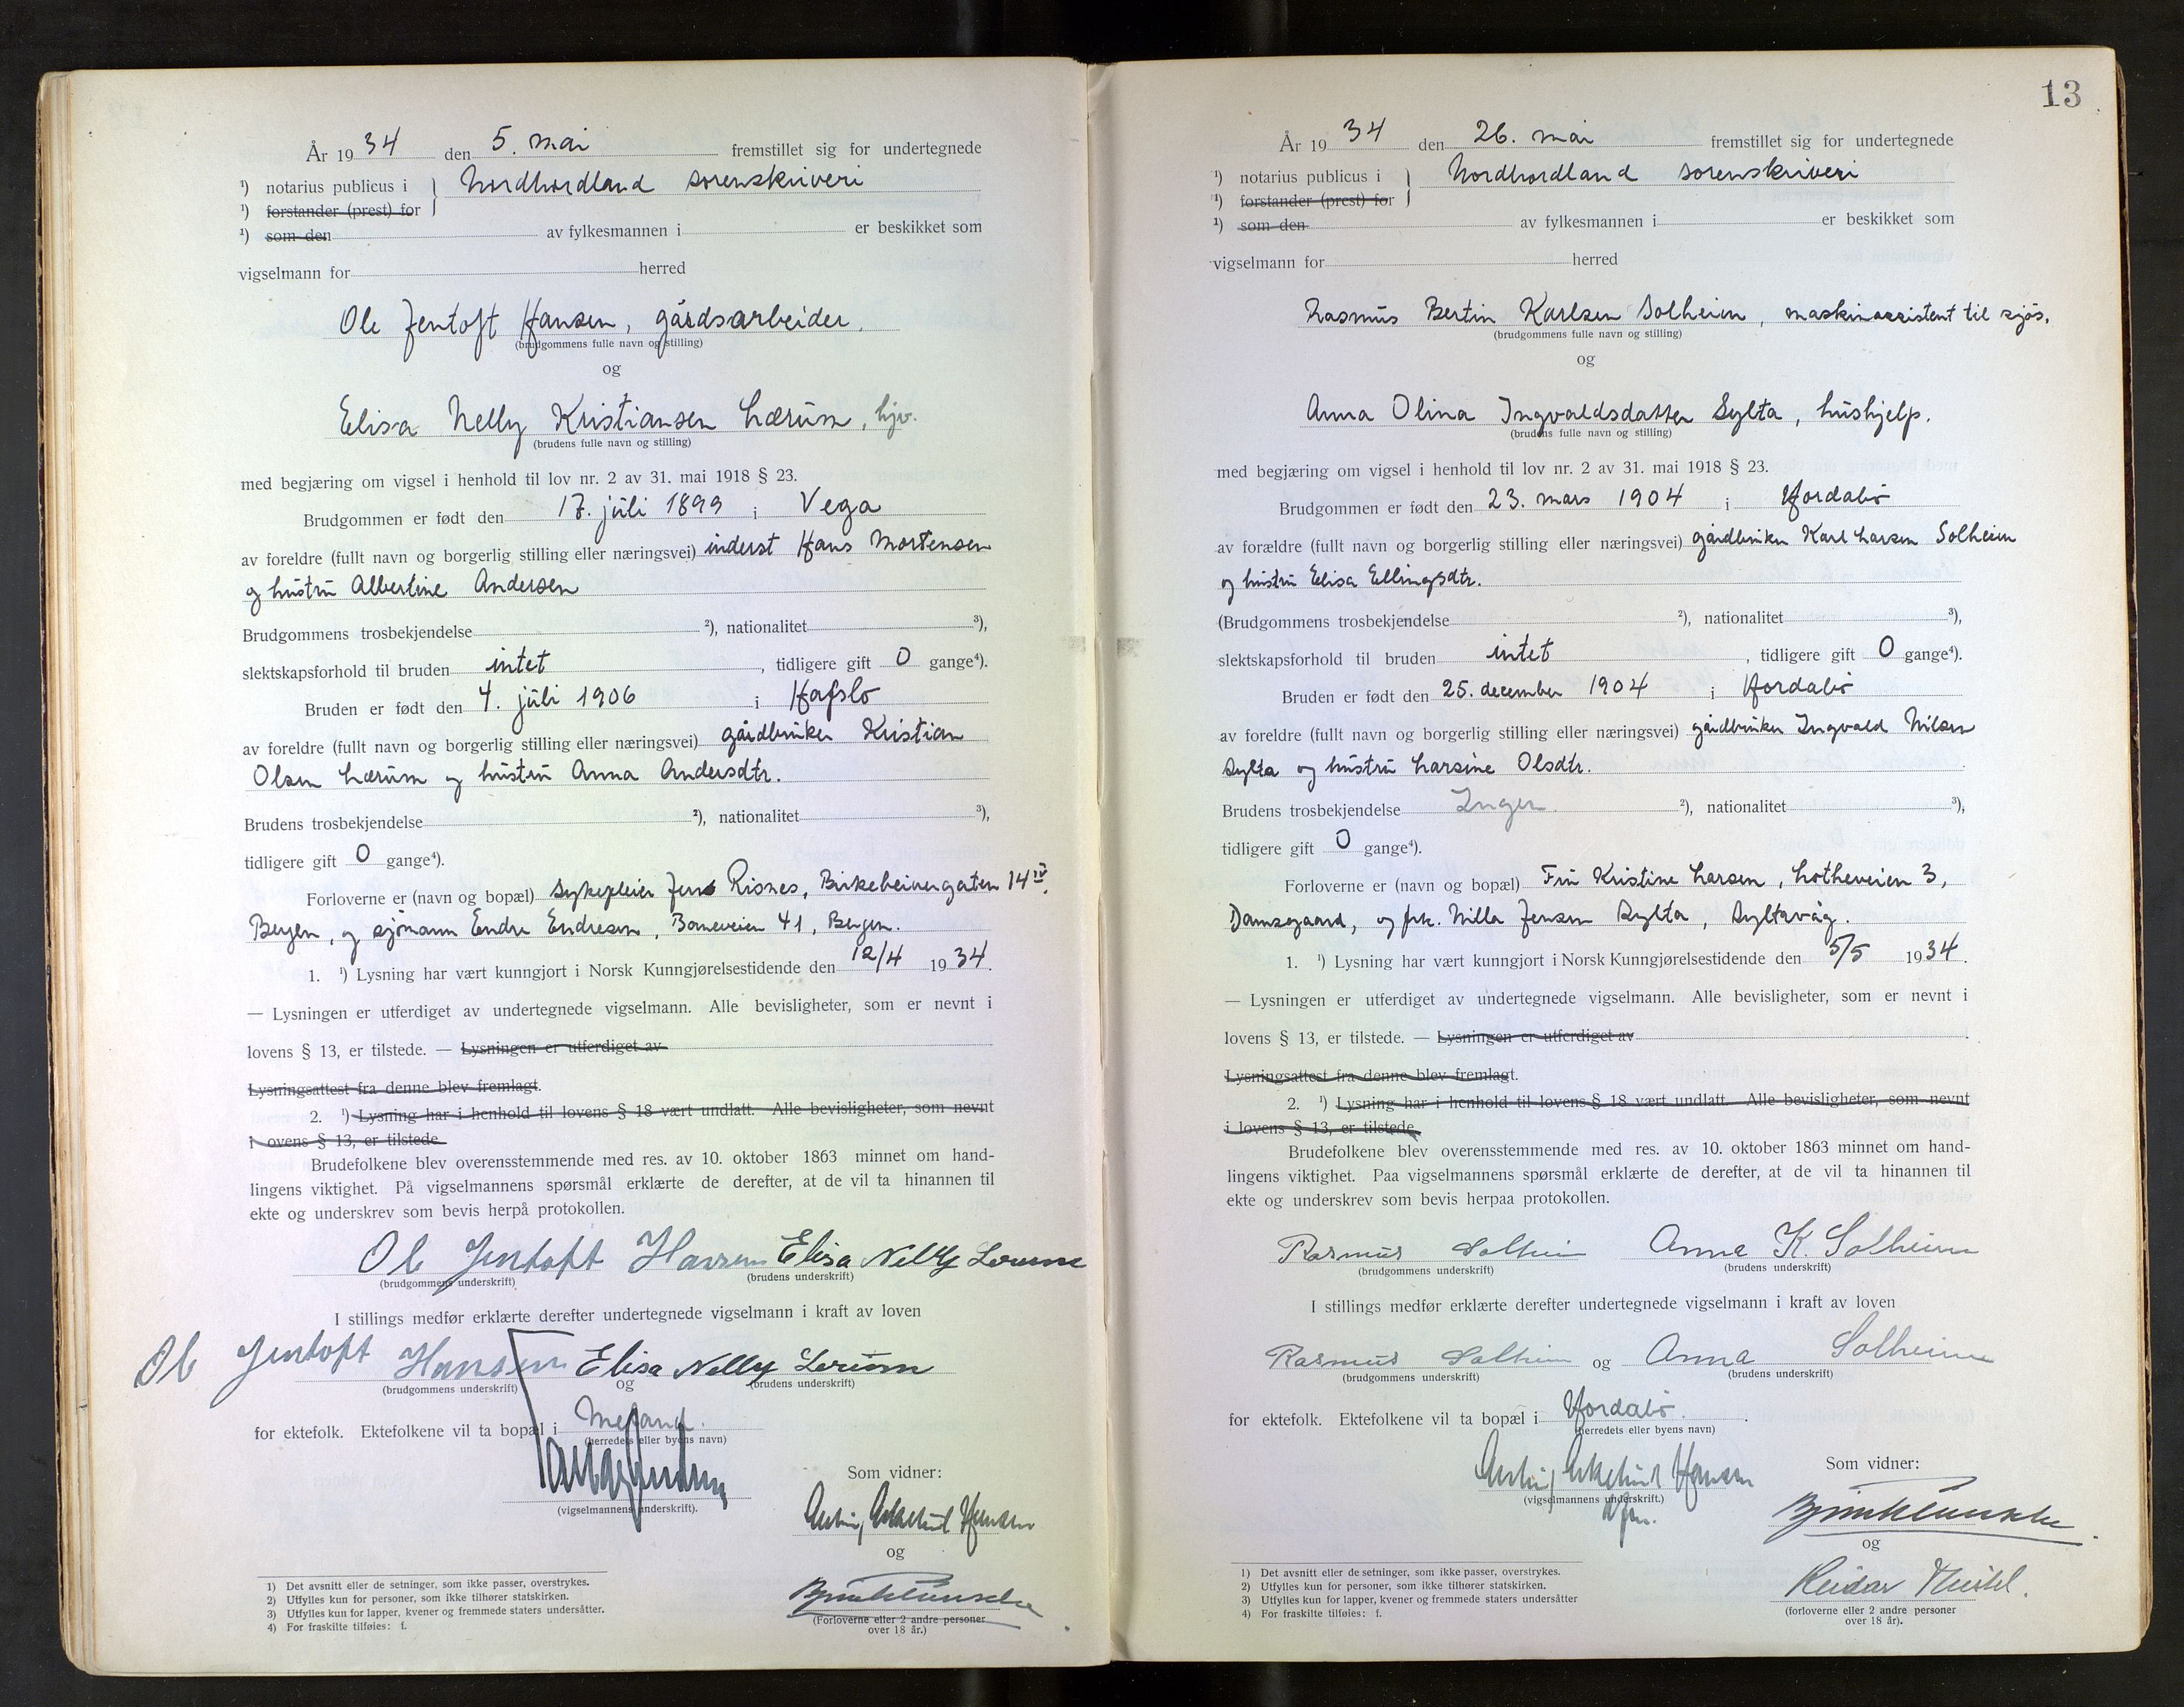 År 1934 den 5. mai fremstillet sig for undertegnede
¹) notarius publicus i } Nordhordland sorenskriveri
¹) forstander (prest) for
¹) som den av fylkesmannen i er beskikket som
vigselmann for herred
Ole Jentoft Hansen, gårdsarbeider.
(brudgommens fulle navn og stilling)
og
Elisa Nelly Kristiansen Lærum, hjv.
(brudens fulle navn og stilling)
med begjæring om vigsel i henhold til lov nr. 2 av 31. mai 1918 § 23.
Brudgommen er født den 17. juli 1899 i Vega
av foreldre (fullt navn og borgerlig stilling eller næringsvei) inderst Hans Mortensen
og hustru Albertine Andersen
Brudgommens trosbekjendelse ²), nationalitet ³),
slektskapsforhold til bruden intet, tidligere gift 0 gange⁴).
Bruden er født den 4. juli 1906 i Hafslo
av foreldre (fullt navn og borgerlig stilling eller næringsvei) gårdbruker Kristian
Olsen Lærum og hustru Anna Andersdtr.
Brudens trosbekjendelse ²), nationalitet ³),
tidligere gift 0 gange⁴).
Forloverne er (navn og bopæl) sykepleier Jens Risnes, Birkebeinergaten 14 IV,
Bergen, og sjømann Endre Endresen, Børneveien 41, Bergen.
1. ¹) Lysning har vært kunngjort i Norsk Kunngjørelsestidende den 12/4 1934.
— Lysningen er utferdiget av undertegnede vigselmann. Alle bevisligheter, som er nevnt i
lovens § 13, er tilstede. — Lysningen er utferdiget av
Lysningsattest fra denne blev fremlagt.
2. ¹) Lysning har i henhold til lovens § 18 vært undlatt. Alle bevisligheter, som nevnt
i lovens § 13, er tilstede.
Brudefolkene blev overensstemmende med res. av 10. oktober 1863 minnet om hand-
lingens viktighet. På vigselmannens spørsmål erklærte de derefter, at de vil ta hinannen til
ekte og underskrev som bevis herpå protokollen.
Ole Jentoft Hansen Elisa Nelly Lerum
(brudgommens underskrift) (brudens underskrift)
I stillings medfør erklærte derefter undertegnede vigselmann i kraft av loven
Ole Jentoft Hansen og Elisa Nelly Lerum
(brudgommens underskrift) (brudens underskrift)
for ektefolk. Ektefolkene vil ta bopæl i Meland.
(herredets eller byens navn)
(vigselmannens underskrift).
Som vidner:
Hansen
og
(Forloverne eller 2 andre personer
over 18 år.)
1) Det avsnitt eller de setninger, som ikke passer, overstrykes.
2) Utfylles kun for personer, som ikke tilhører statskirken.
3) Utfylles kun for lapper, kvener og fremmede staters undersåtter.
4) For fraskilte tilføies: f.
13
År 1934 den 26. mai fremstillet sig for undertegnede
¹) notarius publicus i } Nordhordland sorenskriveri
¹) forstander (prest) for
¹) som den av fylkesmannen i er beskikket som
vigselmann for herred
Rasmus Bertin Karlsen Solheim, maskinassistent til sjøs.
(brudgommens fulle navn og stilling)
og
Anna Olina Ingvaldsdatter Sylta, hushjelp.
(brudens fulle navn og stilling)
med begjæring om vigsel i henhold til lov nr. 2 av 31. mai 1918 § 23.
Brudgommen er født den 23. mars 1904 i Hordabø
av forældre (fullt navn og borgerlig stilling eller næringsvei) gårdbruker Karl Larsen Solheim
og hustru Elisa Ellingsdtr.
(Brudgommens trosbekjendelse ²), nationalitet ³),
slektskapsforhold til bruden intet, tidligere gift 0 gange⁴).
Bruden er født den 25. december 1904 i Hordabø
av foreldre (fullt navn og borgerlig stilling eller næringsvei) gårdbruker Ingvald Nilsen
Sylta og hustru Larsine Olsdtr.
Brudens trosbekjendelse Ingen ²), nationalitet ³),
tidligere gift 0 gange⁴).
Forloverne er (navn og bopæl) Fru Kristine Larsen, Lotheveien 3,
Damsgaard, og frk. Milla Jensen Sylta, Syltavåg.
1. ¹) Lysning har vært kunngjort i Norsk Kunngjørelsestidende den 5/5 1934.
— Lysningen er utferdiget av undertegnede vigselmann. Alle bevisligheter, som er nevnt i
lovens § 13, er tilstede. — Lysningen er utferdiget av
Lysningsattest fra denne blev fremlagt.
2. ¹) Lysning har i henhold til lovens § 18 vært undlatt. Alle bevisligheter, som nevnt
i lovens § 13, er tilstede.
Brudefolkene blev overensstemmende med res. av 10. oktober 1863 minnet om hand-
lingens viktighet. Paa vigselmannens spørsmål erklærte de derefter, at de vil ta hinannen til
ekte og underskrev som bevis herpaa protokollen.
Rasmus Solheim Anna K. Solheim
(brudgommens underskrift) (brudens underskrift)
I stillings medfør erklærte derefter undertegnede vigselmann i kraft av loven
Rasmus Solheim og Anna Solheim
(brudgommens underskrift) (brudens underskrift)
for ektefolk. Ektefolkene vil ta bopæl i Hordabø.
(herredets eller byens navn)
Hansen
(vigselmannens underskrift.)
Som vidner:
og
Reidar
(forloverne eller 2 andre personer
over 18 år).
1) Det avsnitt eller de setninger, som ikke passer, overstrykes.
2) Utfylles kun for personer, som ikke tilhører statskirken.
3) Utfylles kun for lapper, kvener og fremmede staters undersåtter
4) For fraskilte tilføies: f.